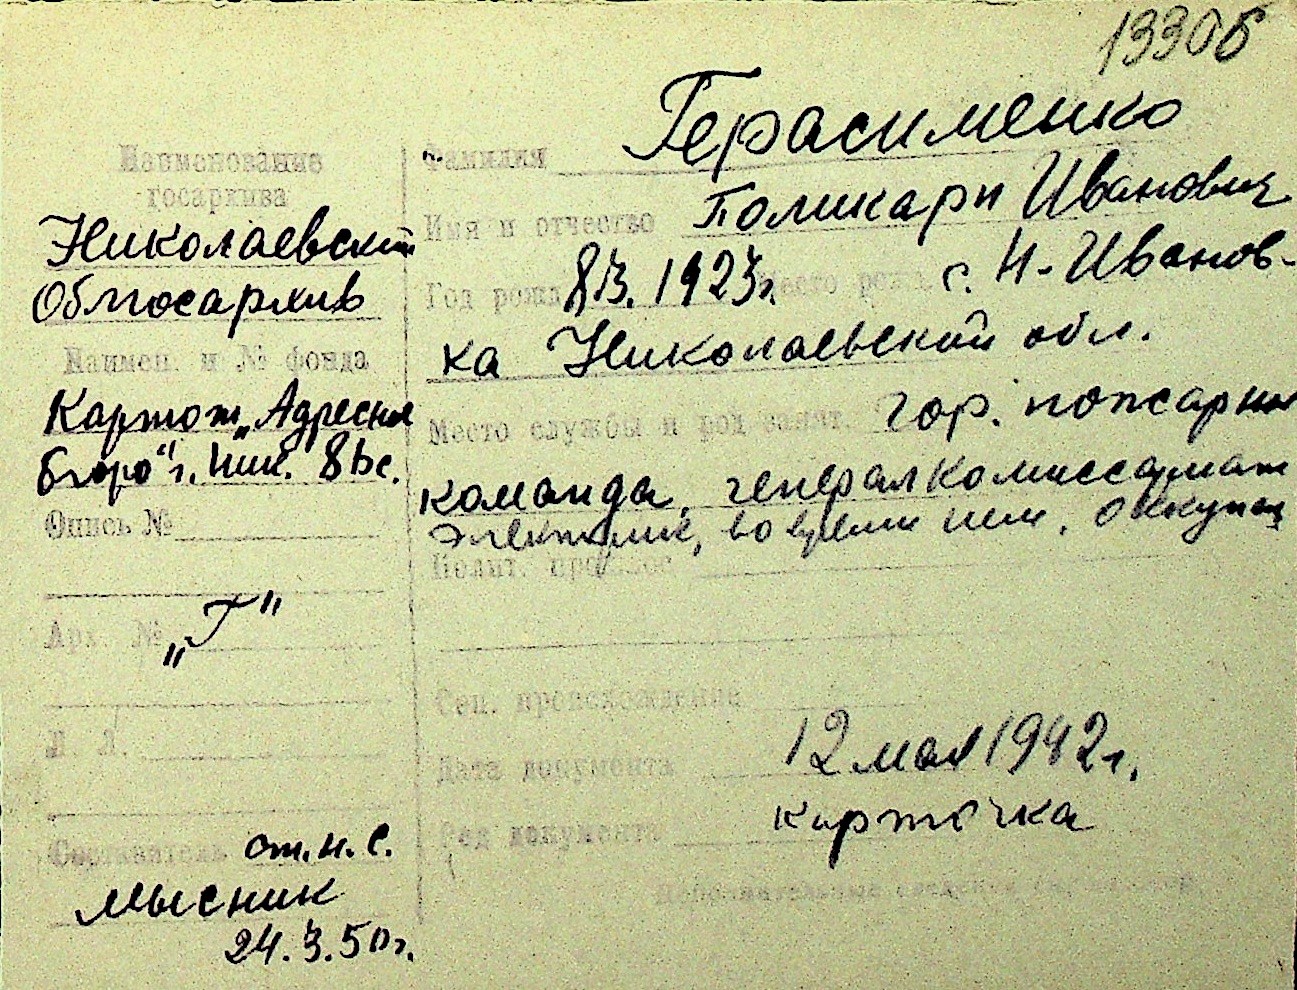 13306
Наименование
госархива
Николаевский
Облгосархив
Наимен. и № фонда
Картот „Адресно
бюро" г. Ник.
Опись №
Арх. №
„Г"
Л. Л.
Составитель ст. н. с.
Мысник
24.3.50г.
Фамилия Герасименко
Имя и отчество Поликарп Иванович
Год рожд 8/3. 1923г. Место рожд. с. Н-Иванов-
ка Николаевской обл.
Место службы и род занят. Гор. пожарная
команда, генералкомиссариат
электрик, во время нем. оккупац
Полит. прошлое
Соц. происхождение
Дата документа 12 мая 1942г.
Род документа карточка
Дополнительные сведения